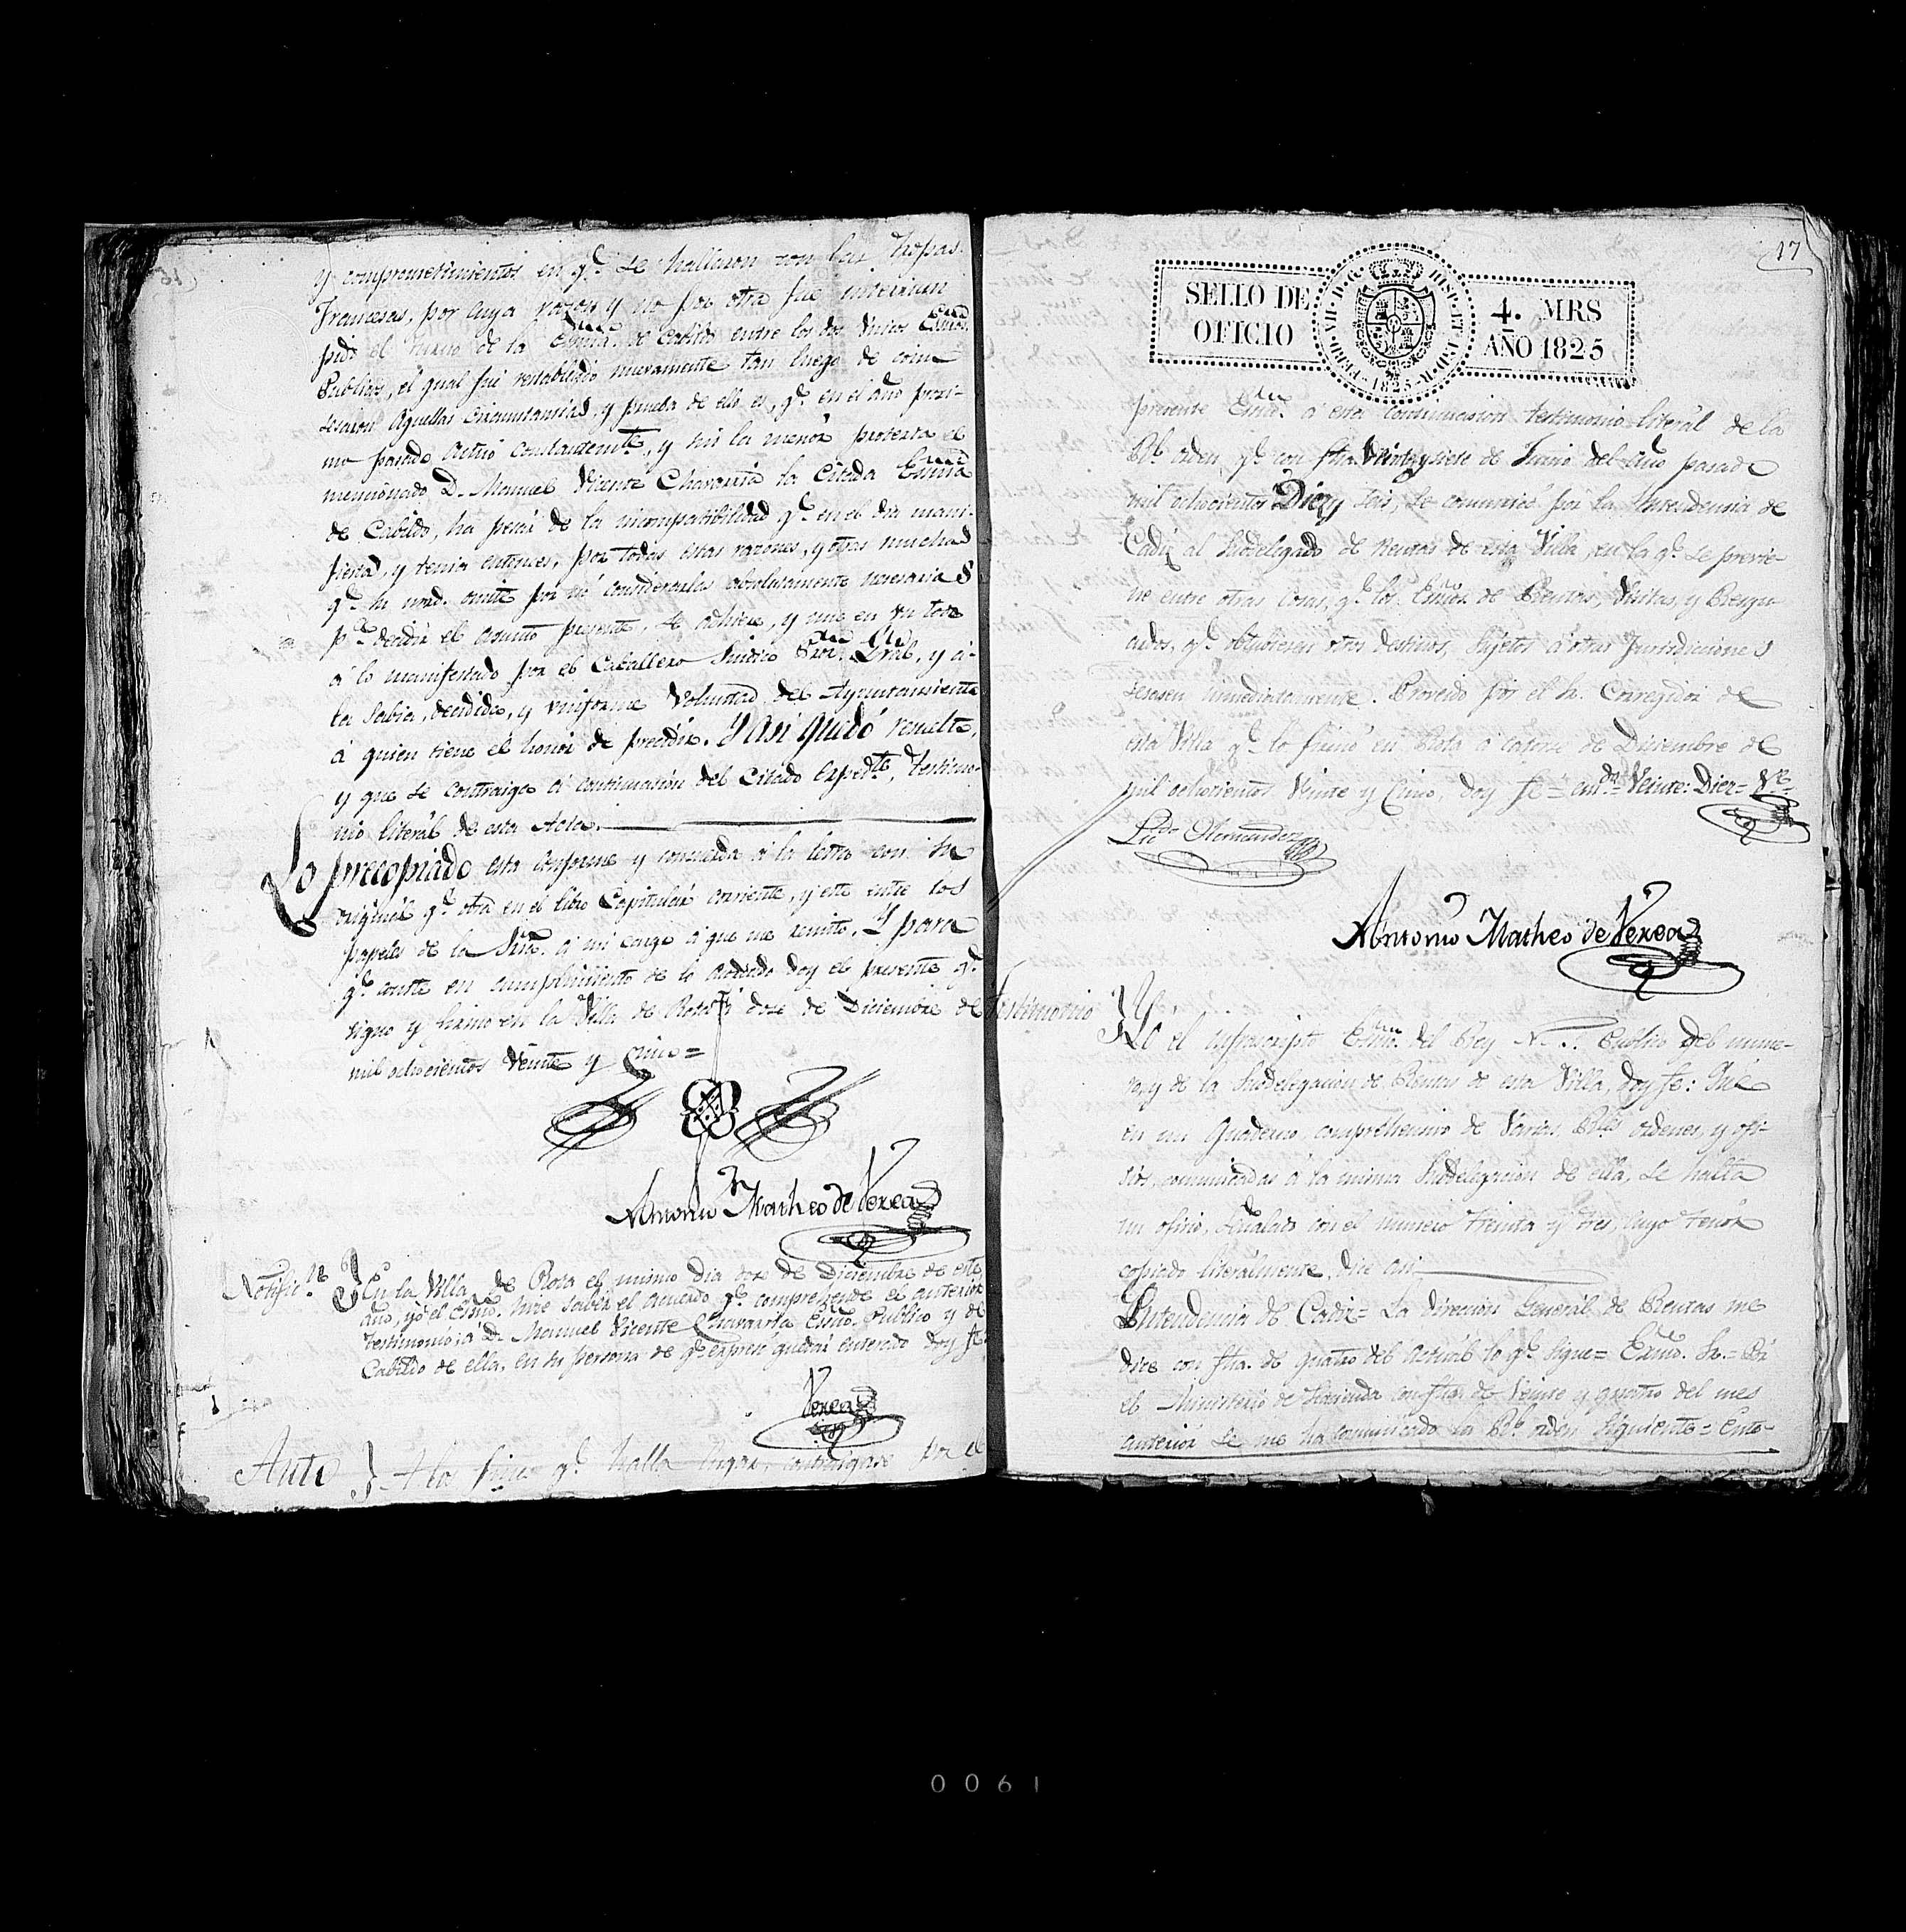 y comprometimientos en q.e se hallaron con las tropas
Francesas, por cuya razon y no por otra fue interrum
pido el turno de la Essnia. de Cabildo entre los dos Unicos Essnos.
Publicos, el qual fue restablecido nuevamente tan luego de como
cesaron Aquellas Circunstancias, y prueba de ello es, q.e en el año proxi-
mo pasado actuó constantem.te, y sin la menor protexta el
mencionado D. Manuel Vicente Chavarria la Citada Essnia
de Cabildo, ha pesar de la incompatibilidad q.e en el dia mani-
fiesta, y tenia entonces, por todas estas razones, y otras muchas
q.e su mrd. omite por no considerarlas absolutamente necesarias
p.a decidir el asunto presente, se adhiere, y une en un todo
á lo manifestado por el Caballero Sindico Pror. Gral, y á
la Sabia, decidida, y uniforme Voluntad del Ayuntamiento
á quien tiene el honor de precedir. Y asi quedó resuelto,
y que se contraiga á continuacion del Citado Exped.te, testimo-
nio literál de esta Acta.
Lo precopiado esta conforme y concuerda á la letra con su
original q.e obra en el libro Capitular corriente, y este entre los
papeles de la Ssna. á mi cargo á que me remito. Y para
q.e conste en cumplimiento de lo acordado doy el presente q.e
signo y firmo en la Villa de Rota á doze de Diciembre de
mil ochocientos Veinte y Cinco=
Antonio Matheo de Verea
Notific.n En la Villa de Rota el mismo dia doze de Diciembre de este
año, yo el Essno. hize saber el acuerdo q.e comprende el anterior
testimonio, á D. Manuel Vicente Chavarria Essno. Publico y de
Cabildo de ella, en su persona de q.e expresó quedar enterado doy fe
Verea
Auto A los fines q.e halla lugar, contraigase por el
17
SELLO DE OFICIO
4. MRS AÑO 1825
FERD. VII. D. G. HISP. ET IND. R. 1825
presente Essno. á esta continuacion testimonio literál de la
Rl. orden, q.e con fha. Veinte y siete de Junio del año pasado
mil ochocientos Diez y seis, se comunicó por la Intendencia de
Cadiz al Subdelegado de Rentas de esta Villa, en la q.e se previe-
ne entre otras cosas, q.e los Essnos. de Rentas, Visitas, y Resgu
ardos, q.e obtubieran otros destinos, Sujetos á otras Jurisdiciones
cesasen inmediatamente. Proveido por el Sr. Corregidor de
esta Villa q.e lo firmó en Rota á catorce de Diciembre de
mil ochocientos Veinte y Cinco, doy fe= enm.do= Veinte: Diez= Ve.
Licdo. Hernandez
Antonio Matheo de Verea
Testimonio Yo el infrascripto Essno. del Rey N. S. Publico del nume-
ro, y de la Subdelegacion de Rentas de esta Villa, doy fe: Que
en un Quaderno comprehensivo de Varias Rles. ordenes, y ofi-
cios, comunicadas á la misma Subdelegacion de ella, se halla
un oficio, señalado con el numero treinta y tres, cuyo tenor
copiado literalmente, dice asi
Intendencia de Cadiz= La Direccion Generál de Rentas me
dice con fha. de quatro del actual lo q.e Sigue= Exmo. Sr.= Por
el Ministerio de Hacienda con fha. de Veinte y quatro del mes
anterior se me ha comunicado la Rl. orden Siguiente= Ente-
0061